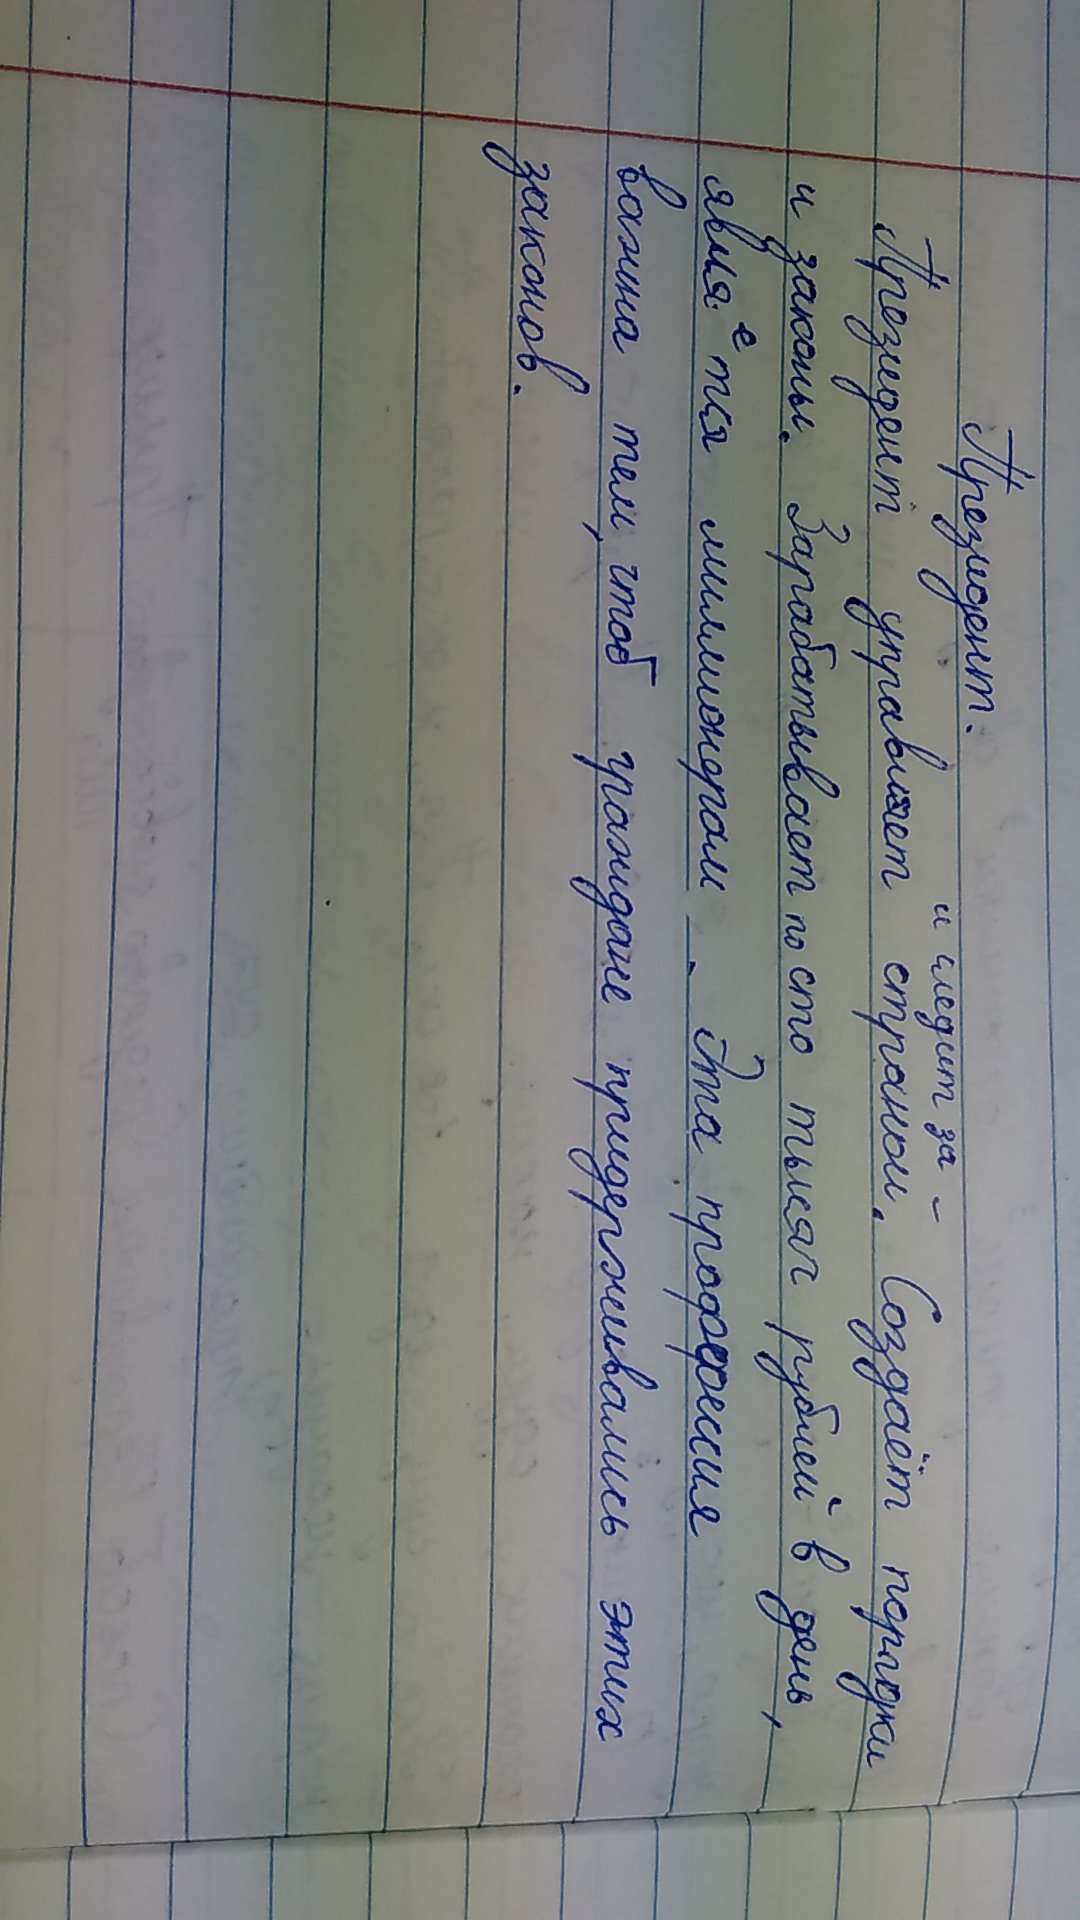 Президент.
и следит за -
Президент управляет страной. Создаёт порядки
и законы. Зарабатывает по сто тысяч рублей в день,
является миллионерам. Эта профессия
важна тем, чтоб граждане придерживались этих
законов.